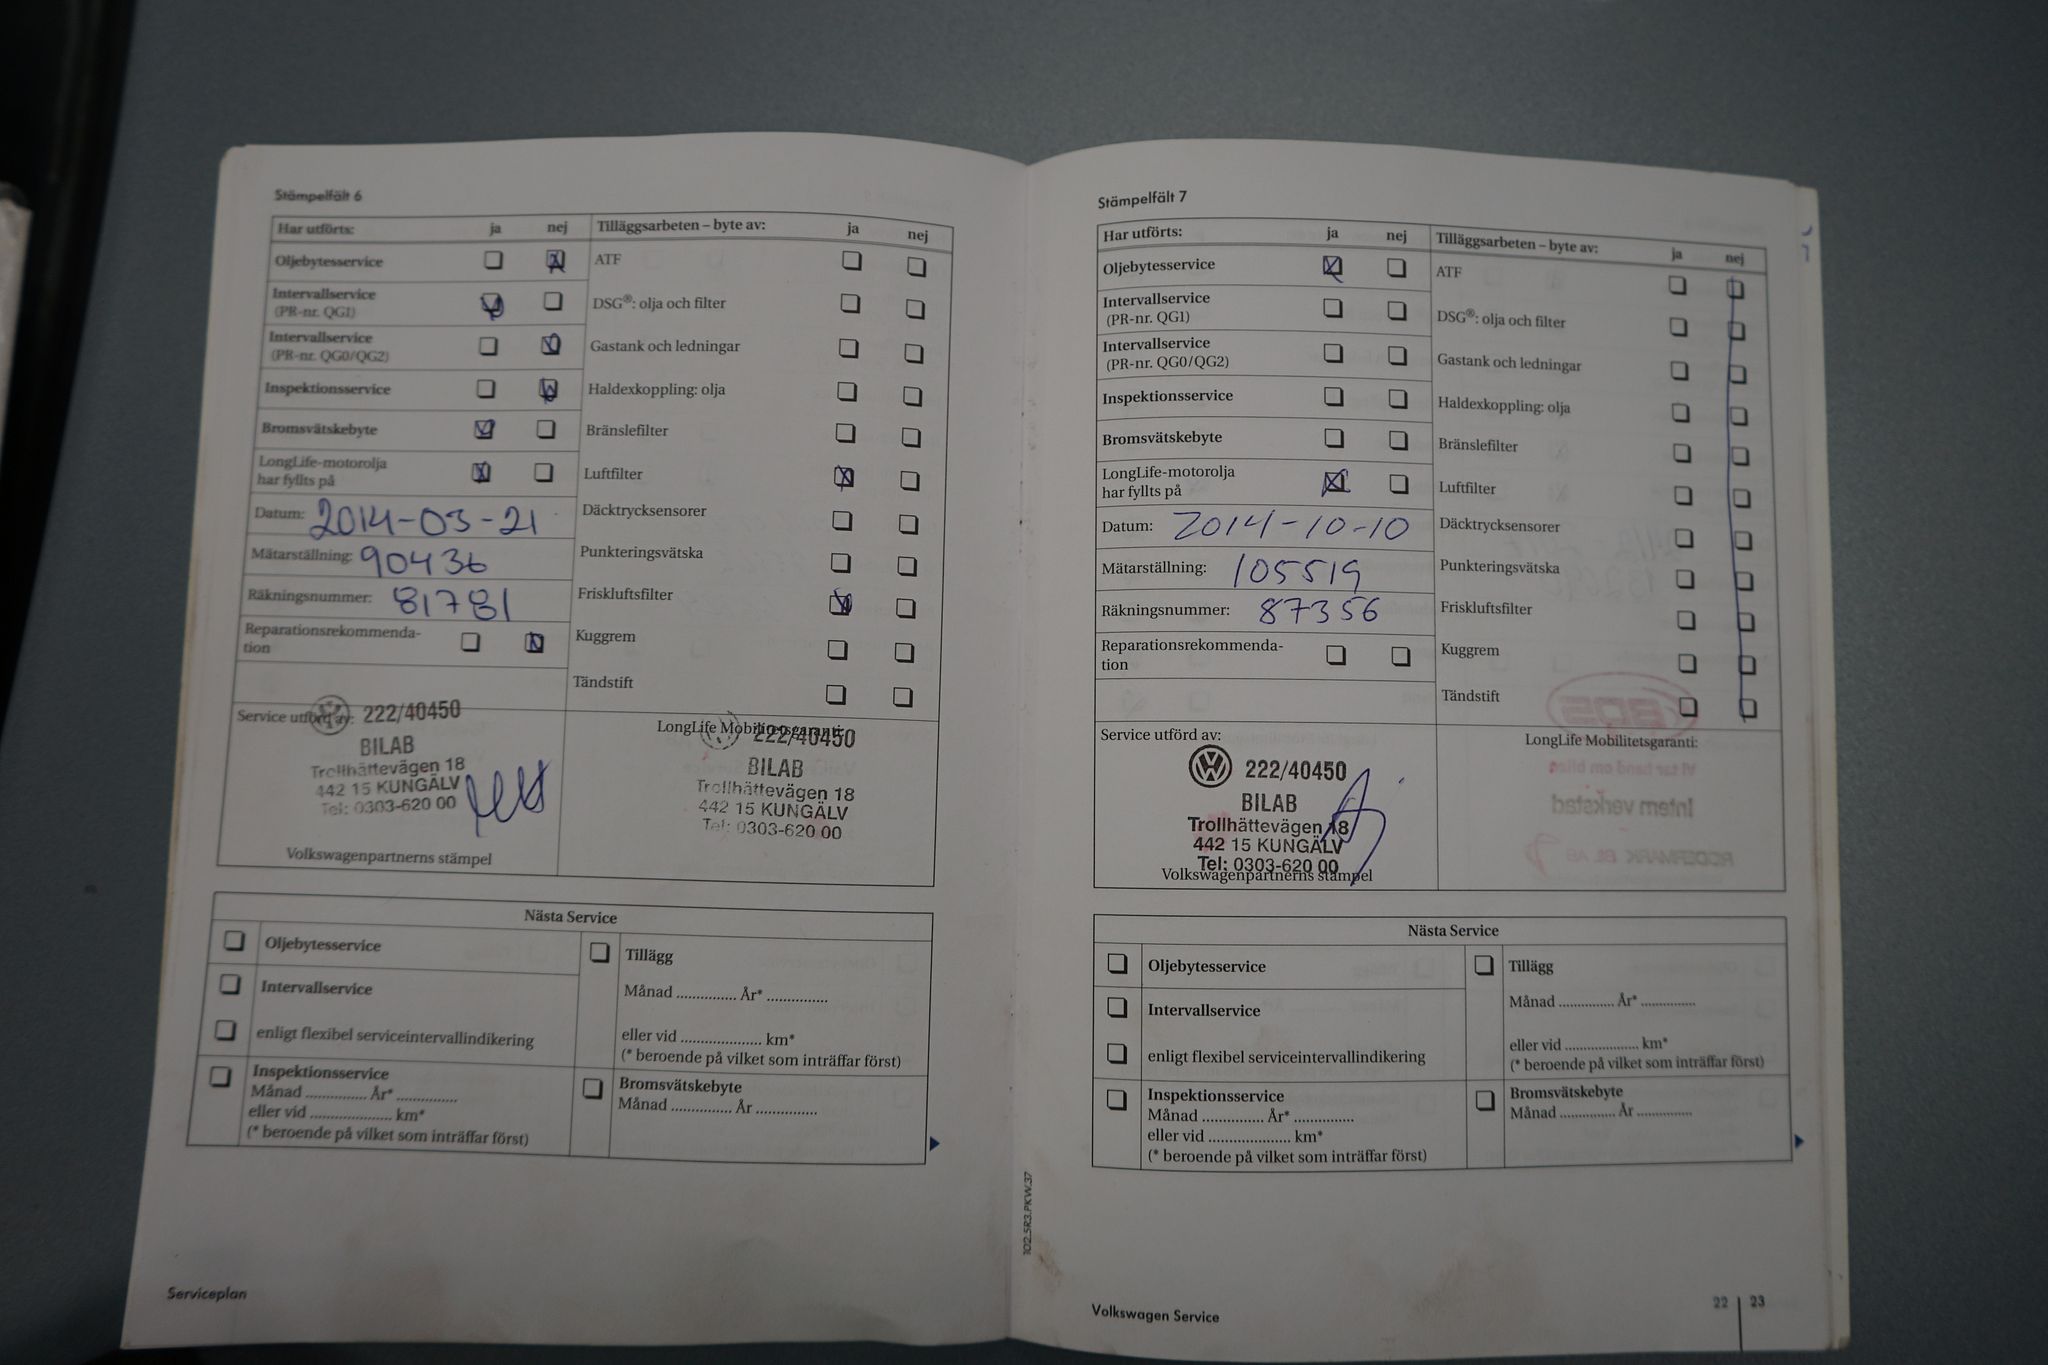 Stämpelfält 6
Har utförts: ja nej
Oljebytesservice
Intervallservice
(PR-nr. QG1)
Intervallservice
(PR-nr. QG0/QG2)
Inspektionsservice
Bromsvätskebyte
LongLife-motorolja
har fyllts på
Datum: 2014-03-21
Mätarställning: 90436
Räkningsnummer: 81781
Reparationsrekommenda-
tion
Tilläggsarbeten – byte av: ja nej
ATF
DSG®: olja och filter
Gastank och ledningar
Haldexkoppling: olja
Bränslefilter
Luftfilter
Däcktrycksensorer
Punkteringsvätska
Friskluftsfilter
Kuggrem
Tändstift
Service utförd av: 222/40450
BILAB
Trollhättevägen 18
442 15 KUNGÄLV
Tel: 0303-620 00
Volkswagenpartnerns stämpel
LongLife Mobilitetsgaranti:
222/40450
BILAB
Trollhättevägen 18
442 15 KUNGÄLV
Tel: 0303-620 00
Nästa Service
Oljebytesservice
Intervallservice
enligt flexibel serviceintervallindikering
Inspektionsservice
Månad ............... År* ...............
eller vid .................... km*
(* beroende på vilket som inträffar först)
Tillägg
Månad ............... År* ...............
eller vid .................... km*
(* beroende på vilket som inträffar först)
Bromsvätskebyte
Månad ............... År ...............
Serviceplan
102.5R3.PKW.37
Stämpelfält 7
Har utförts: ja nej
Oljebytesservice
Intervallservice
(PR-nr. QG1)
Intervallservice
(PR-nr. QG0/QG2)
Inspektionsservice
Bromsvätskebyte
LongLife-motorolja
har fyllts på
Datum: 2014-10-10
Mätarställning: 105519
Räkningsnummer: 87356
Reparationsrekommenda-
tion
Tilläggsarbeten – byte av: ja nej
ATF
DSG®: olja och filter
Gastank och ledningar
Haldexkoppling: olja
Bränslefilter
Luftfilter
Däcktrycksensorer
Punkteringsvätska
Friskluftsfilter
Kuggrem
Tändstift
Service utförd av:
222/40450
BILAB
Trollhättevägen 18
442 15 KUNGÄLV
Tel: 0303-620 00
Volkswagenpartnerns stämpel
LongLife Mobilitetsgaranti:
Nästa Service
Oljebytesservice
Intervallservice
enligt flexibel serviceintervallindikering
Inspektionsservice
Månad ............... År* ...............
eller vid .................... km*
(* beroende på vilket som inträffar först)
Tillägg
Månad .............. År* ..............
eller vid .................. km*
(* beroende på vilket som inträffar först)
Bromsvätskebyte
Månad .............. År ..............
Volkswagen Service
22 23